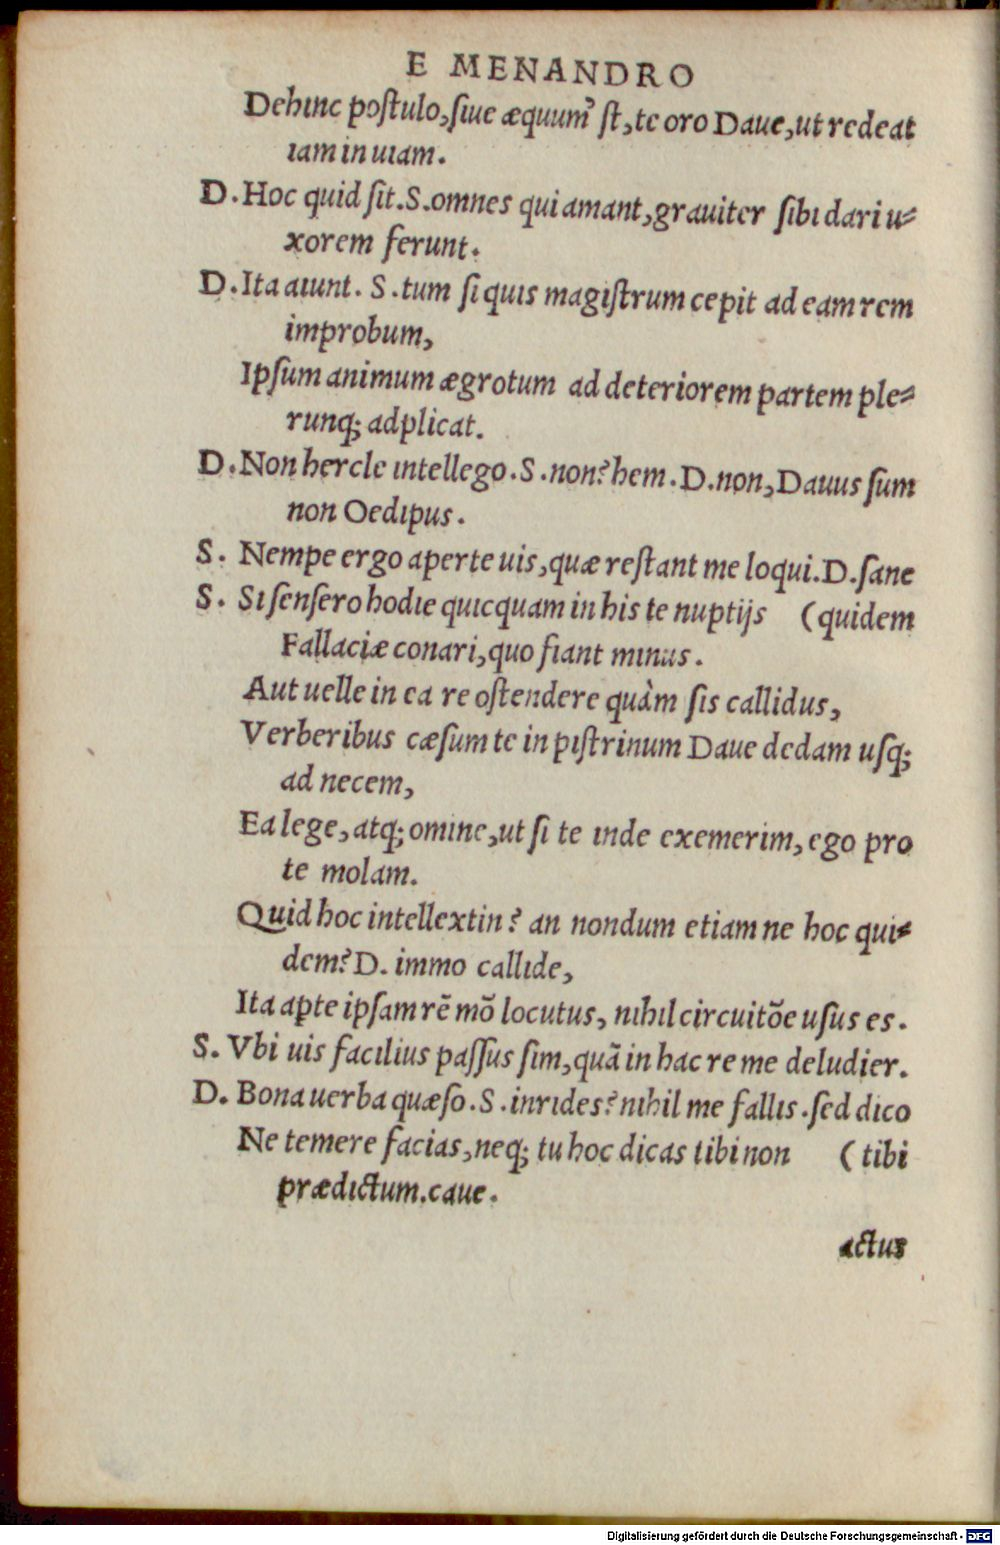 E MENANDRO
Dehinc postulo, siue æquum'st, te oro Daue, ut redeat
iam in uiam.
D. Hoc quid sit. S. omnes qui amant, grauiter sibi dari u-
xorem ferunt.
D. Ita aiunt. S. tum si quis magistrum cepit ad eam rem
improbum,
Ipsum animum ægrotum ad deteriorem partem ple-
runq; adplicat.
D. Non hercle intellego. S. non? hem. D. non, Dauus sum
non Oedipus.
S. Nempe ergo aperte uis, quæ restant me loqui. D. sane
S. Si sensero hodie quicquam in his te nuptijs (quidem
Fallaciæ conari, quo fiant minus.
Aut uelle in ea re ostendere quàm sis callidus,
Verberibus cæsum te in pistrinum Daue dedam usq;
ad necem,
Ea lege, atq; omine, ut si te inde exemerim, ego pro
te molam.
Quid hoc intellextin? an nondum etiam ne hoc qui-
dem? D. immo callide,
Ita apte ipsam rẽ mõ locutus, nihil circuitõe usus es.
S. Vbi uis facilius passus sim, quã in hac re me deludier.
D. Bona uerba quæso. S. inrides? nihil me fallis. sed dico
Ne temere facias, neq; tu hoc dicas tibi non (tibi
prædictum. caue.
actus
Digitalisierung gefördert durch die Deutsche Forschungsgemeinschaft - DFG